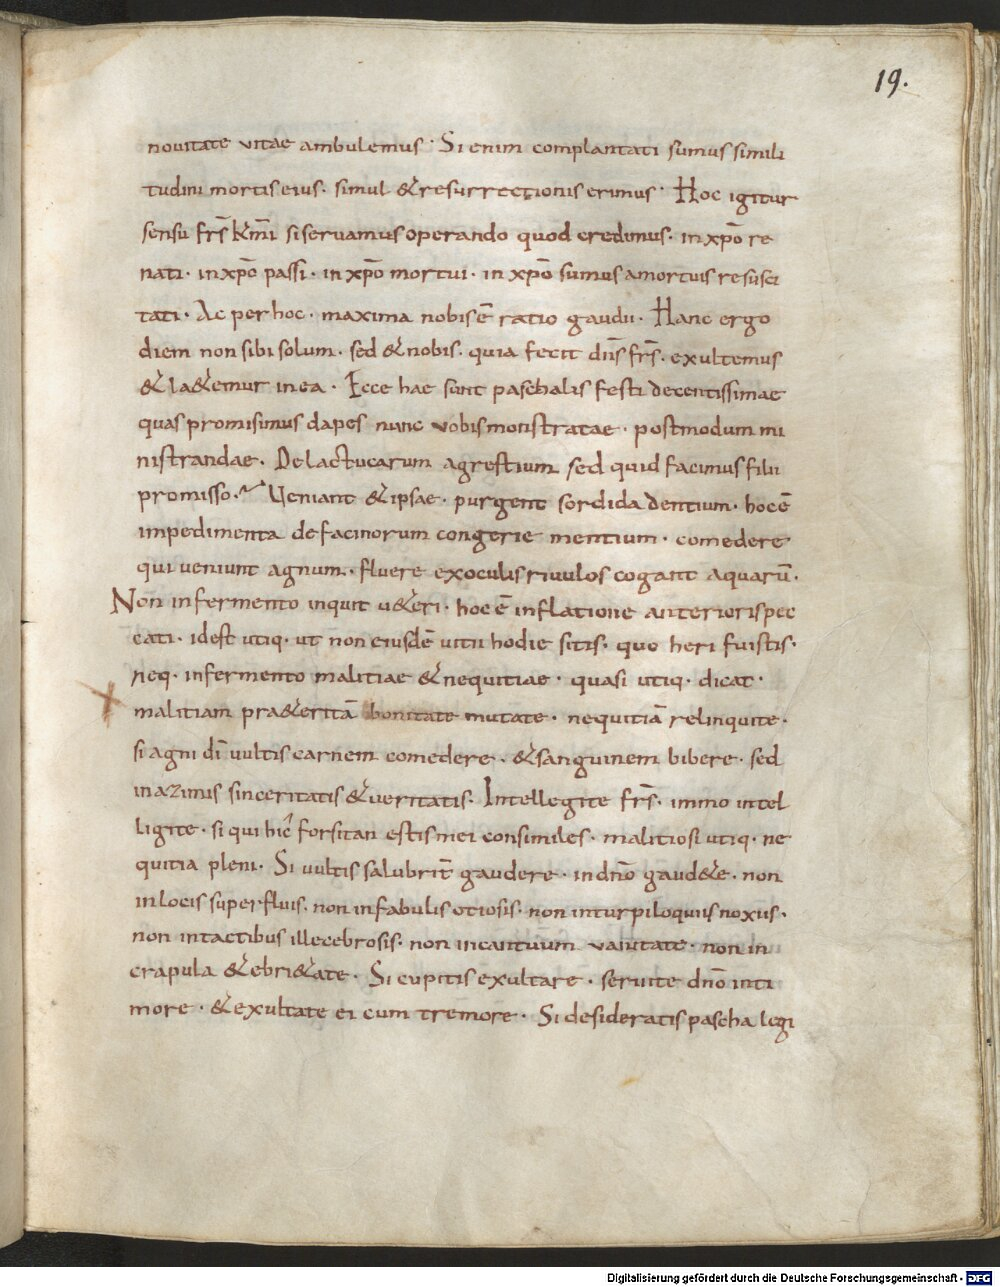 19.
nouitate vitae ambulemus · Si enim complantati sumus simili
tudini mortis eius · simul & resurrectionis erimus · Hoc igitur
sensu frs̄ km̄i si seruamus operando quod credimus · in xp̄o re
nati · in xp̄o passi · in xp̄o mortui · in xp̄o sumus a mortuis resusci
tati · Ac per hoc · maxima nobis ē ratio gaudii · Hanc ergo
diem non sibi solum · sed & nobis · quia fecit dn̄s frs̄ · exultemus
& la&emur in ea · Ecce hae sunt paschalis festi decentissimae
quas promisimus dapes nunc vobis monstratae · postmodum mi
nistrandae · De lactucarum agrestium sed quid facimus filii
promisso · Ueniant & ipsae · purgent sordida dentium · hoc ē
impedimenta de facinorum congerie mentium · comedere
qui veniunt agnum · fluere ex oculis riuulos cogant aquarū ·
Non in fermento inquit u&eri · hoc ē inflatione anterioris pec
cati · id est utiq · ut non eiusdē uitii hodie sitis · quo heri fuistis ·
neq · in fermento malitiae & nequitiae · quasi utiq · dicat ·
malitiam pra&eritā bonitate mutate · nequitiā relinquite ·
si agni dī uultis carnem comedere · & sanguinem bibere · sed
in azimis sinceritatis & ueritatis · Intellegite frs̄ · immo intel
ligite · si qui hic forsitan estis mei consimiles · malitiosi utiq · ne
quitia pleni · Si uultis salubrit̄ gaudere · in dn̄o gaud&e · non
in locis superfluis · non in fabulis otiosis · non in turpiloquiis noxiis ·
non in tactibus illecebrosis · non in cantuum vanitate · non in
crapula & ebri&ate · Si cupitis exultare · seruite dn̄o in ti
more · & exultate ei cum tremore · Si desideratis pascha legi
Digitalisierung gefördert durch die Deutsche Forschungsgemeinschaft - DFG